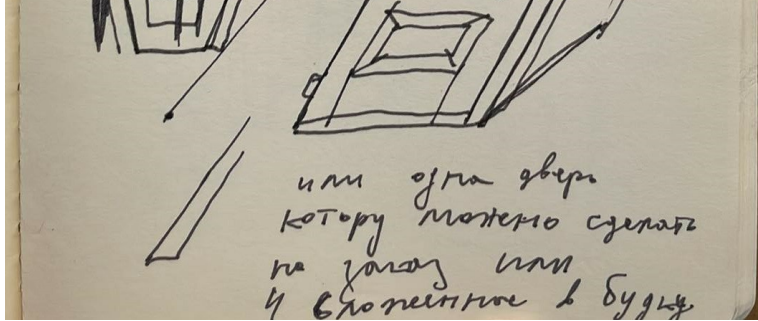 или одна дверь
котору можено сделать
на заказ или
и вложенное в будку